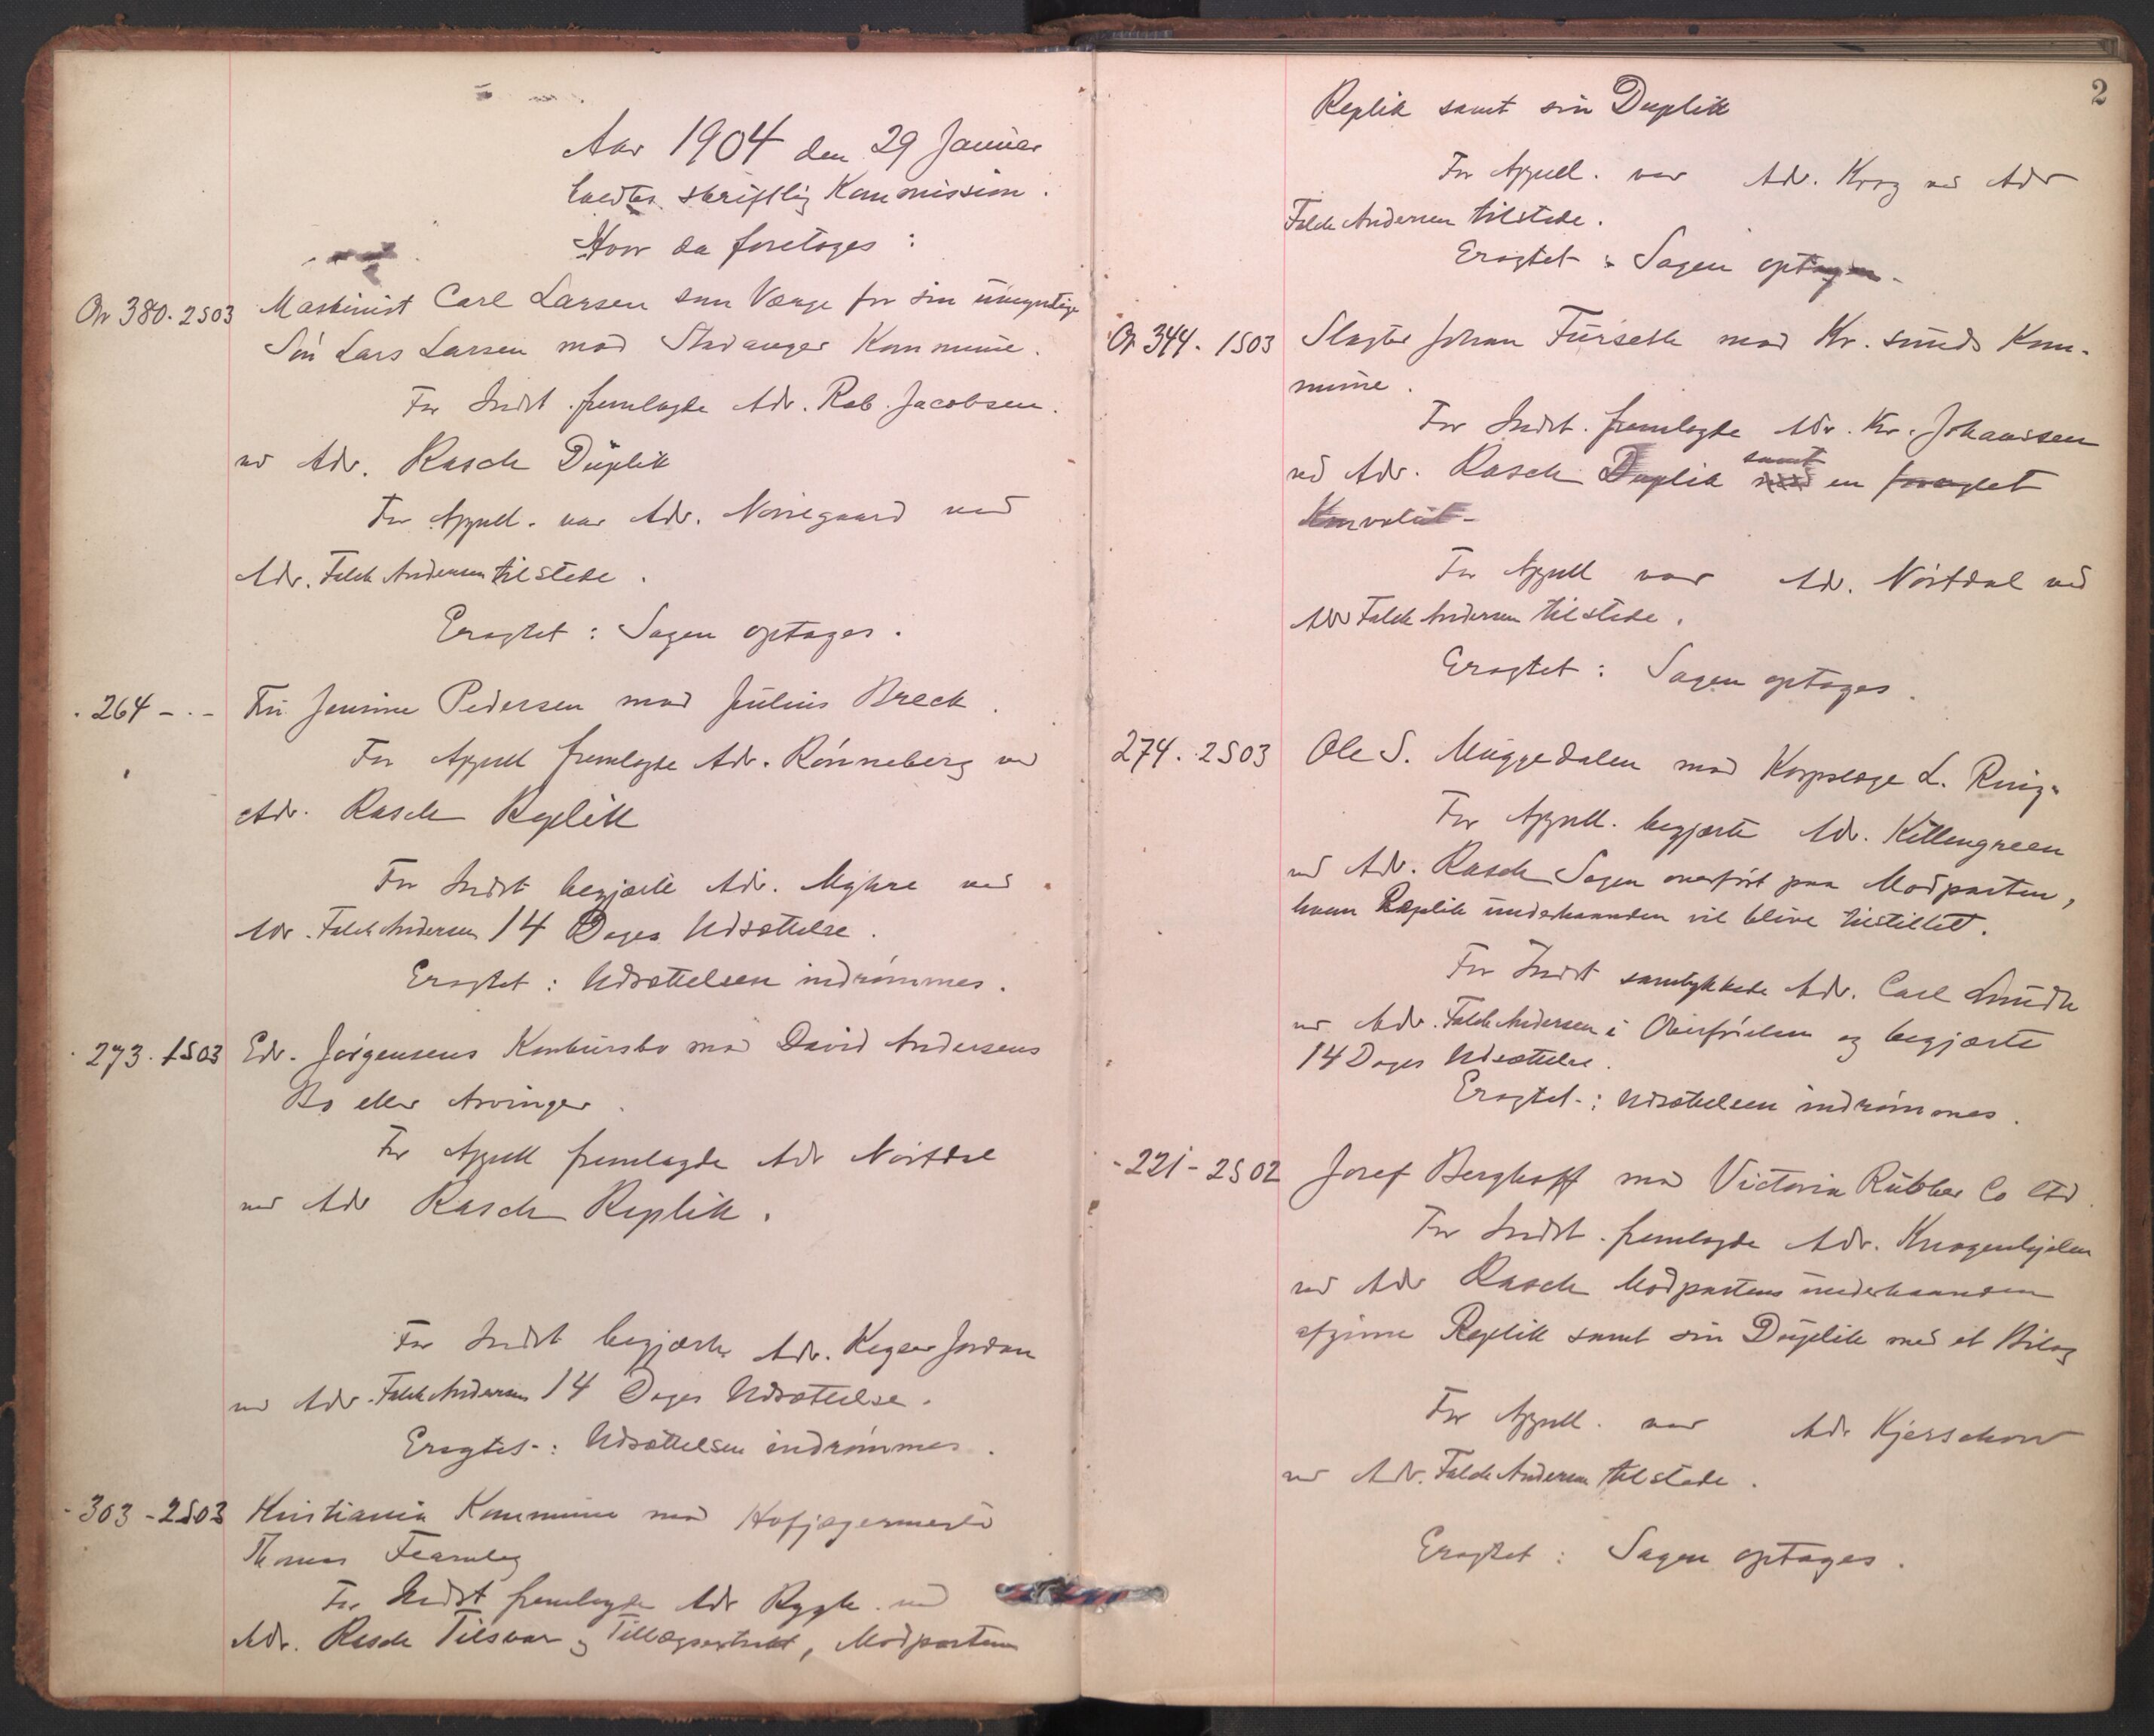 Aar 1904 den 29 Januar
holdtes skriftlig Kommission.
Hvor da foretoges:
On 380. 2S03 Maskinist Carl Larsen som Værge for sin umyndige
Søn Lars Larsen mod Stavanger Kommune.
For Indst. fremlagde Adv. Rob. Jacobsen
ved Adv. Rasch Duplik
For Appell. var Adv. Nørregaard ved
Adv. Falck Andersen tilstede.
Eragtet: Sagen optages.
. 264 - . - Fru Jensine Pedersen mod Julius Breck.
For Appell fremlagde Adv. Rønneberg ved
Adv. Rasch Replik
For Indst begjærte Adv. Myhre ved
Adv. Falck Andersen 14 Dages Udsættelse.
Eragtet: Udsættelsen indrømmes.
. 273. 1S03 Edv. Jørgensens Konkursbo mod David Andersens
Bo eller Arvinger.
For Appell fremlagde Adv Nørtdal
ved Adv Rasch Replik.
For Indst begjærte Adv. Keyser Jordan
ved Adv. Falck Andersen 14 Dages Udsættelse.
Eragtet: Udsættelsen indrømmes.
- 303 - 2S03 Kristiania Kommune mod Hofjægermester
Thomas Fearnley
For Indst fremlagde Adv Rygh ved
Adv. Rasch Tilsvar og Tillægsextrakt, Modpartens
2
Replik samt sin Duplik
For Appell. var Adv. Krag ved Adv
Falck Andersen tilstede.
Eragtet: Sagen optages.
On 344. 1S03 Slagter Johan Furseth mod Kr. sunds Kom-
mune.
For Indst. fremlagde Adv. Kr. Johanssen
ved Adv. Rasch Duplik samt en forseglet
Konvolut.
For Appell var Adv. Nørtdal ved
Adv Falck Andersen tilstede.
Eragtet: Sagen optages.
274. 2S03 Ole S. Muggedalen mod Korpslæge L. Ring.
For Appell. begjærte Adv. Killengreen
ved Adv. Rasch Sagen overført paa Modparten,
hvem Replik underhaanden vil blive tilstillet.
For Indst samtykkede Adv. Carl Lundh
ved Adv. Falck Andersen i Overførelsen og begjærte
14 Dages Udsættelse.
Eragtet: Udsættelsen indrømmes.
- 221 - 2S02 Josef Berghoff mod Victoria Rubber Co Ltd.
For Indst. fremlagde Adv. Knagenhjelm
ved Adv Rasch Modpartens underhaanden
afgivne Replik samt sin Duplik med et Bilag
For Appell. var Adv Kjerschow
ved Adv. Falck Andersen tilstede.
Eragtet: Sagen optages.